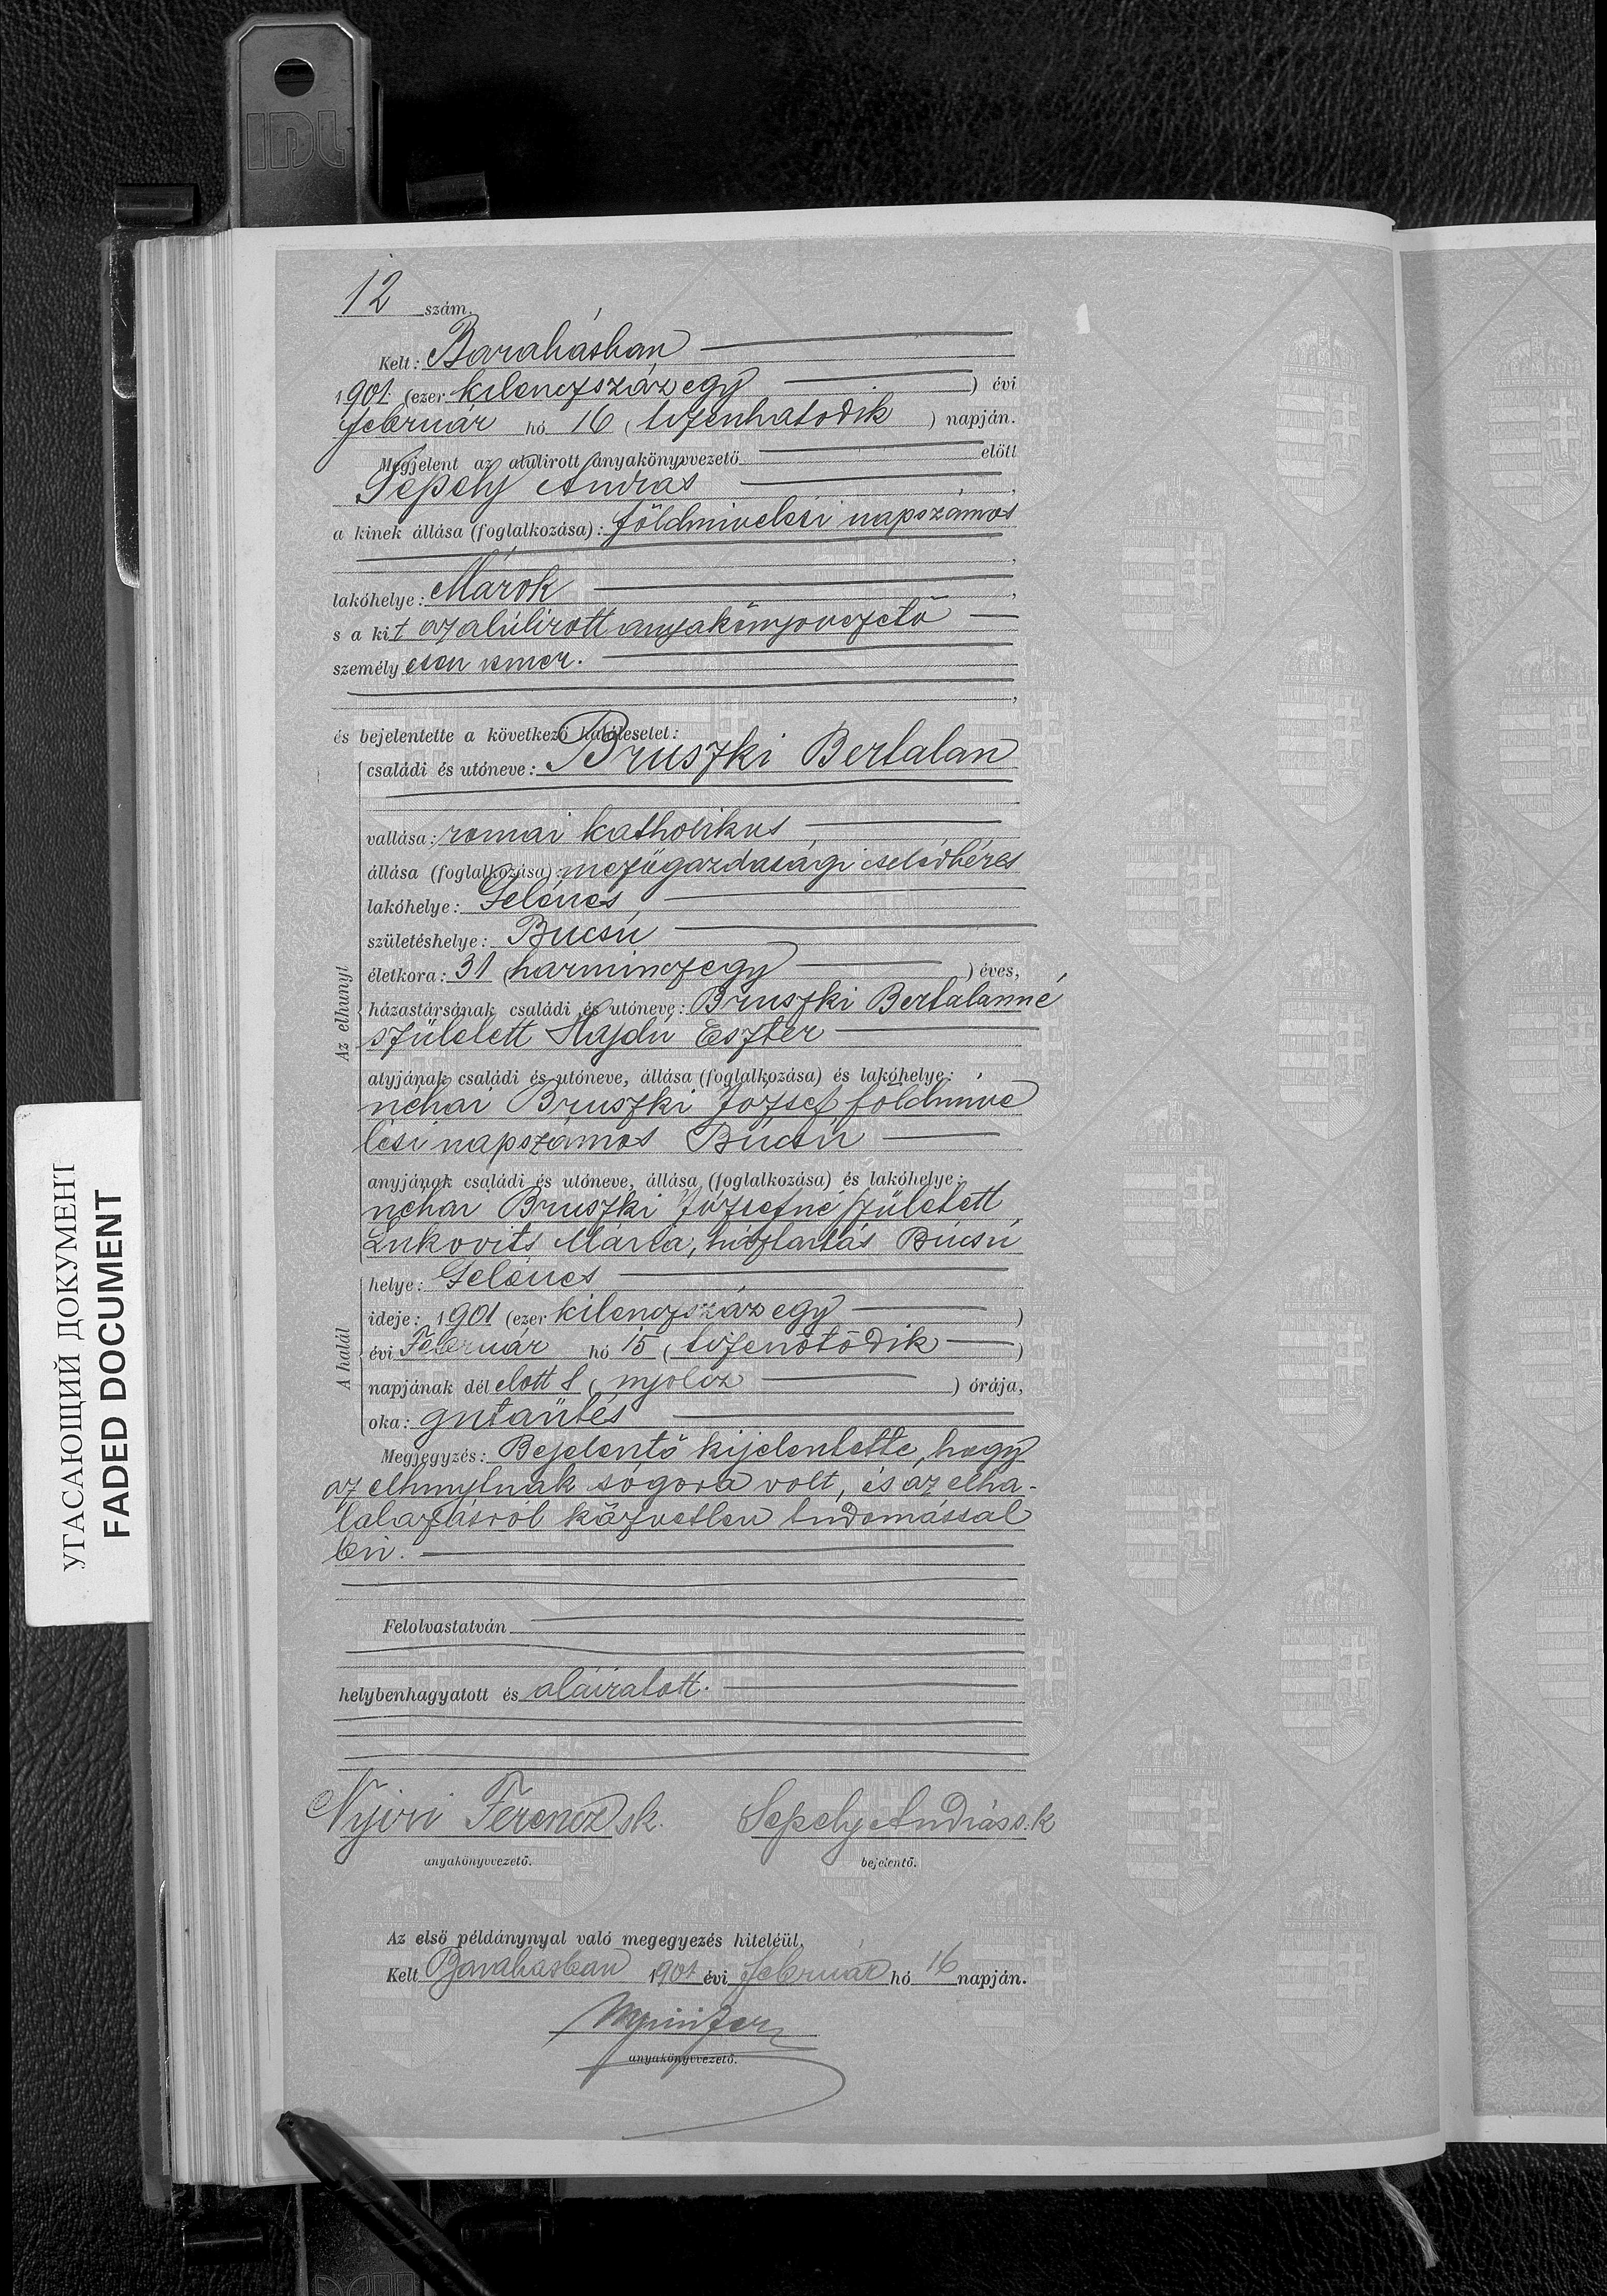 IDL
12 szám.
Kelt: Barabásban
1901. (ezer kilenczszáz egy ) évi
február hó 16 (tizenhatodik ) napján.
Megjelent az alulirott anyakönyvvezető előtt
Sepely András ,
a kinek állása (foglalkozása): földmivelési napszámos
,
lakóhelye: Márok ,
s a kit az alúlirott anyakönyvvezető
személy esen ismer.
,
és bejelentette a következő halálesetet:
Az elhunyt
családi és utóneve: Bruszki Bertalan
vallása: romai katholikus
állása (foglalkozása): mezőgazdasági cseléd béres
lakóhelye: Gelénes
születéshelye: Bucsú
életkora: 31 (harminczegy ) éves,
házastársának családi és utóneve: Bruszki Bertalanné
született Hajdú Eszter
atyjának családi és utóneve, állása (foglalkozása) és lakóhelye:
néhai Bruszki József földmive
lési napszámos Búcsú
anyjának családi és utóneve, állása (foglalkozása) és lakóhelye:
néhai Bruszki Józsefné született
Lukovits Mária, háztartás Búcsú
A halál
helye: Gelénes
ideje: 1901 (ezer kilenczszáz egy )
évi Február hó 15 (tizenötödik )
napjának dél elott 8 (nyolcz ) órája,
oka: gutaütés
Megjegyzés: Bejelentő kijelentette, hogy
az elhunytnak sógora volt, és az elha-
lalozásról közvetlen tudomással
bir.
Felolvastatván
helybenhagyatott és aláiratott.
Nyiri Ferencz sk. Sepely András s.k
anyakönyvvezető. bejelentő.
Az első példánynyal való megegyezés hiteléül,
Kelt Barabasban 1901 évi február hó 16 napján.
Nyiri Fer
anyakönyvvezető.
УГАСАЮЩИЙ ДОКУМЕНТ
FADED DOCUMENT